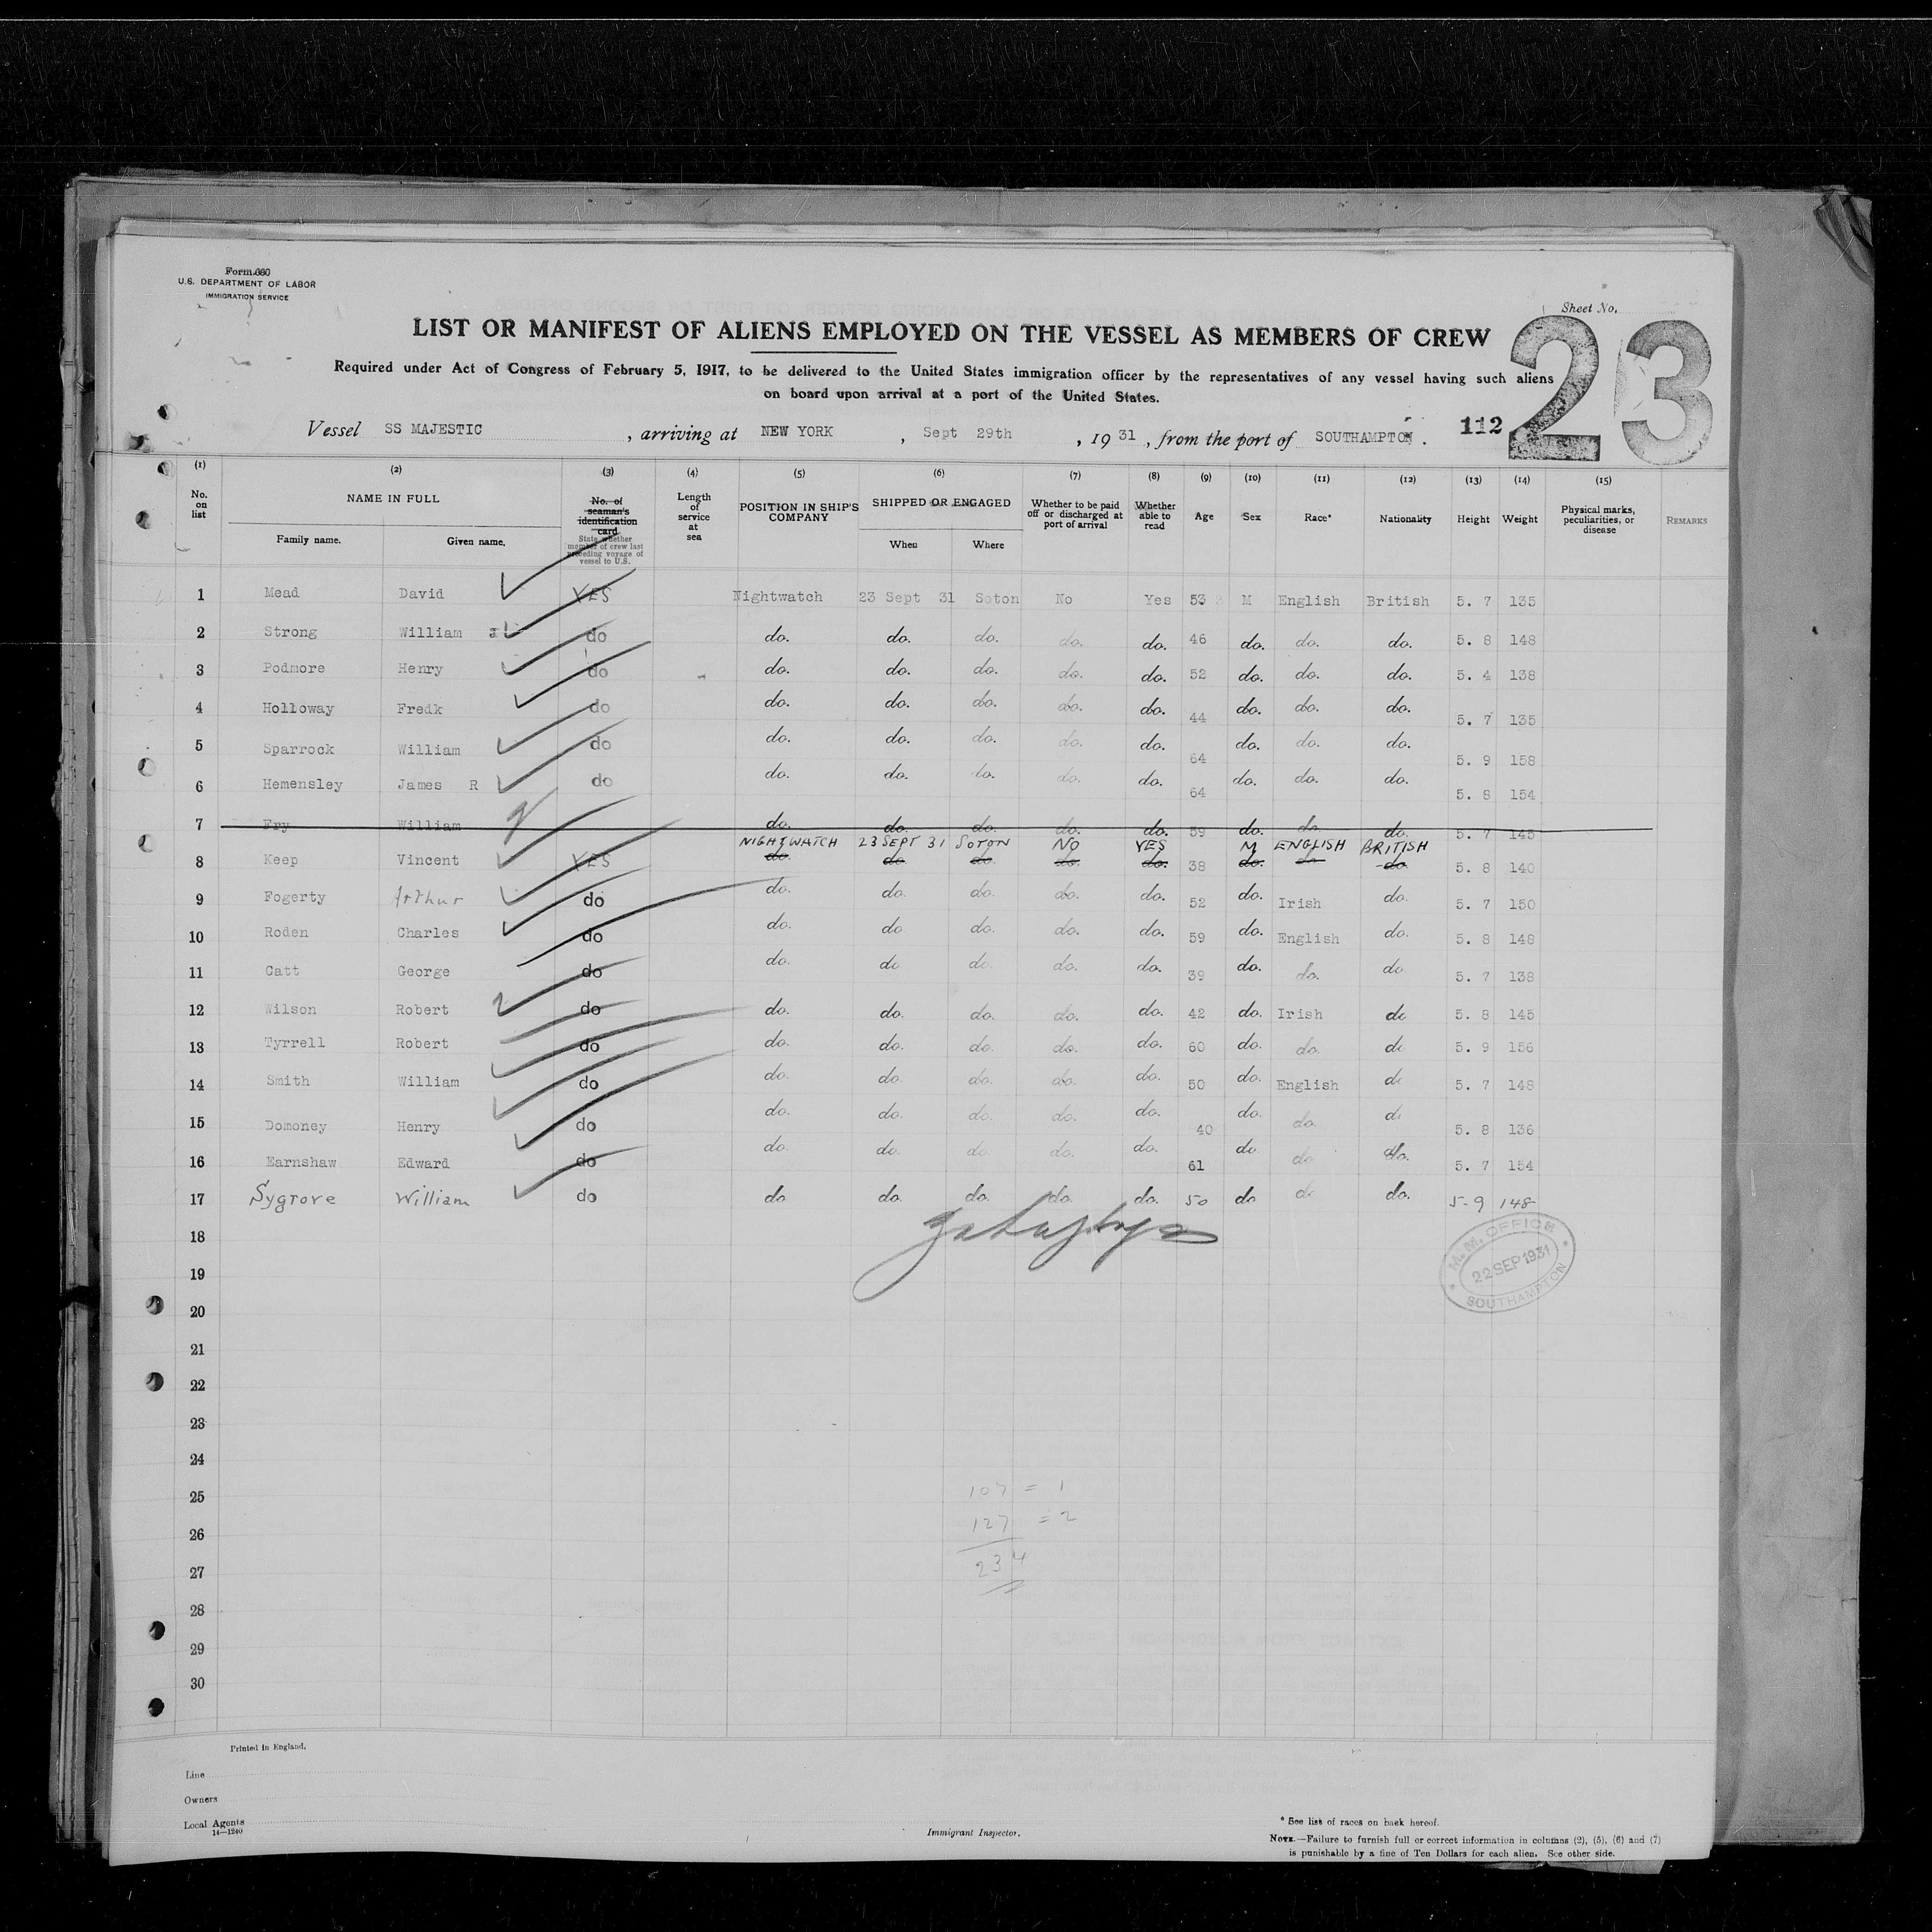 Form 680
U.S. DEPARTMENT OF LABOR
IMMIGRATION SERVICE
Sheet No.
23
LIST OR MANIFEST OF ALIENS EMPLOYED ON THE VESSEL AS MEMBERS OF CREW
Required under Act of Congress of February 5, 1917, to be delivered to the United States immigration officer by the representatives of any vessel having such aliens
on board upon arrival at a port of the United States.
Vessel SS MAJESTIC , arriving at NEW YORK , Sept 29th , 19 31 , from the port of SOUTHAMPTON . 112
(1) (2) (3) (4) (5) (6) (7) (8) (9) (10) (11) (12) (13) (14) (15)
No. on list
NAME IN FULL
Family name. Given name.
No. of seaman's identification card
State whether member of crew last preceding voyage of vessel to U.S.
Length of service at sea
POSITION IN SHIP'S COMPANY
SHIPPED OR ENGAGED
When Where
Whether to be paid off or discharged at port of arrival
Whether able to read
Age
Sex
Race*
Nationality
Height
Weight
Physical marks, peculiarities, or disease
REMARKS
1 Mead David YES Nightwatch 23 Sept 31 Soton No Yes 53 M English British 5. 7 135
2 Strong William do do. do. do. do. do. 46 do. do. do. 5. 8 148
3 Podmore Henry do do. do. do. do. do. 52 do. do. do. 5. 4 138
4 Holloway Fredk do do. do. do. do. do. 44 do. do. do. 5. 7 135
5 Sparrock William do do. do. do. do. do. 64 do. do. do. 5. 9 158
6 Hemensley James R do do. do. do. do. do. 64 do. do. do. 5. 8 154
7 Fry William do. do. do. do. do. 59 do. do. do. 5. 7 145
NIGHTWATCH 23 SEPT 31 SOTON NO YES M ENGLISH BRITISH
8 Keep Vincent YES do. do. do. do. do. 38 do. do do. 5. 8 140
9 Fogerty Arthur do do. do. do. do. do. 52 do. Irish do. 5. 7 150
10 Roden Charles do do. do do. do. do. 59 do. English do. 5. 8 148
11 Catt George do do. do do. do. do. 39 do. do. do 5. 7 138
12 Wilson Robert do do. do. do. do. do. 42 do. Irish do 5. 8 145
13 Tyrrell Robert do do. do. do. do. do. 60 do. do. do 5. 9 156
14 Smith William do do. do. do. do. do. 50 do. English do 5. 7 148
15 Domoney Henry do do. do. do. do. do. 40 do. do. do 5. 8 136
16 Earnshaw Edward do do. do. do. do. do. 61 do. do do. 5. 7 154
17 Sygrove William do do. do. do. do. do. 50 do do do. 5-9 148
18
M.M. OFFICE
22 SEP 1931
SOUTHAMPTON
19
20
21
22
23
24
25 107 = 1
26 127 = 2
27 234
28
29
30
Printed in England.
Line
Owners
Local Agents
14—1240
Immigrant Inspector.
* See list of races on back hereof.
NOTE.—Failure to furnish full or correct information in columns (2), (5), (6) and (7)
is punishable by a fine of Ten Dollars for each alien. See other side.